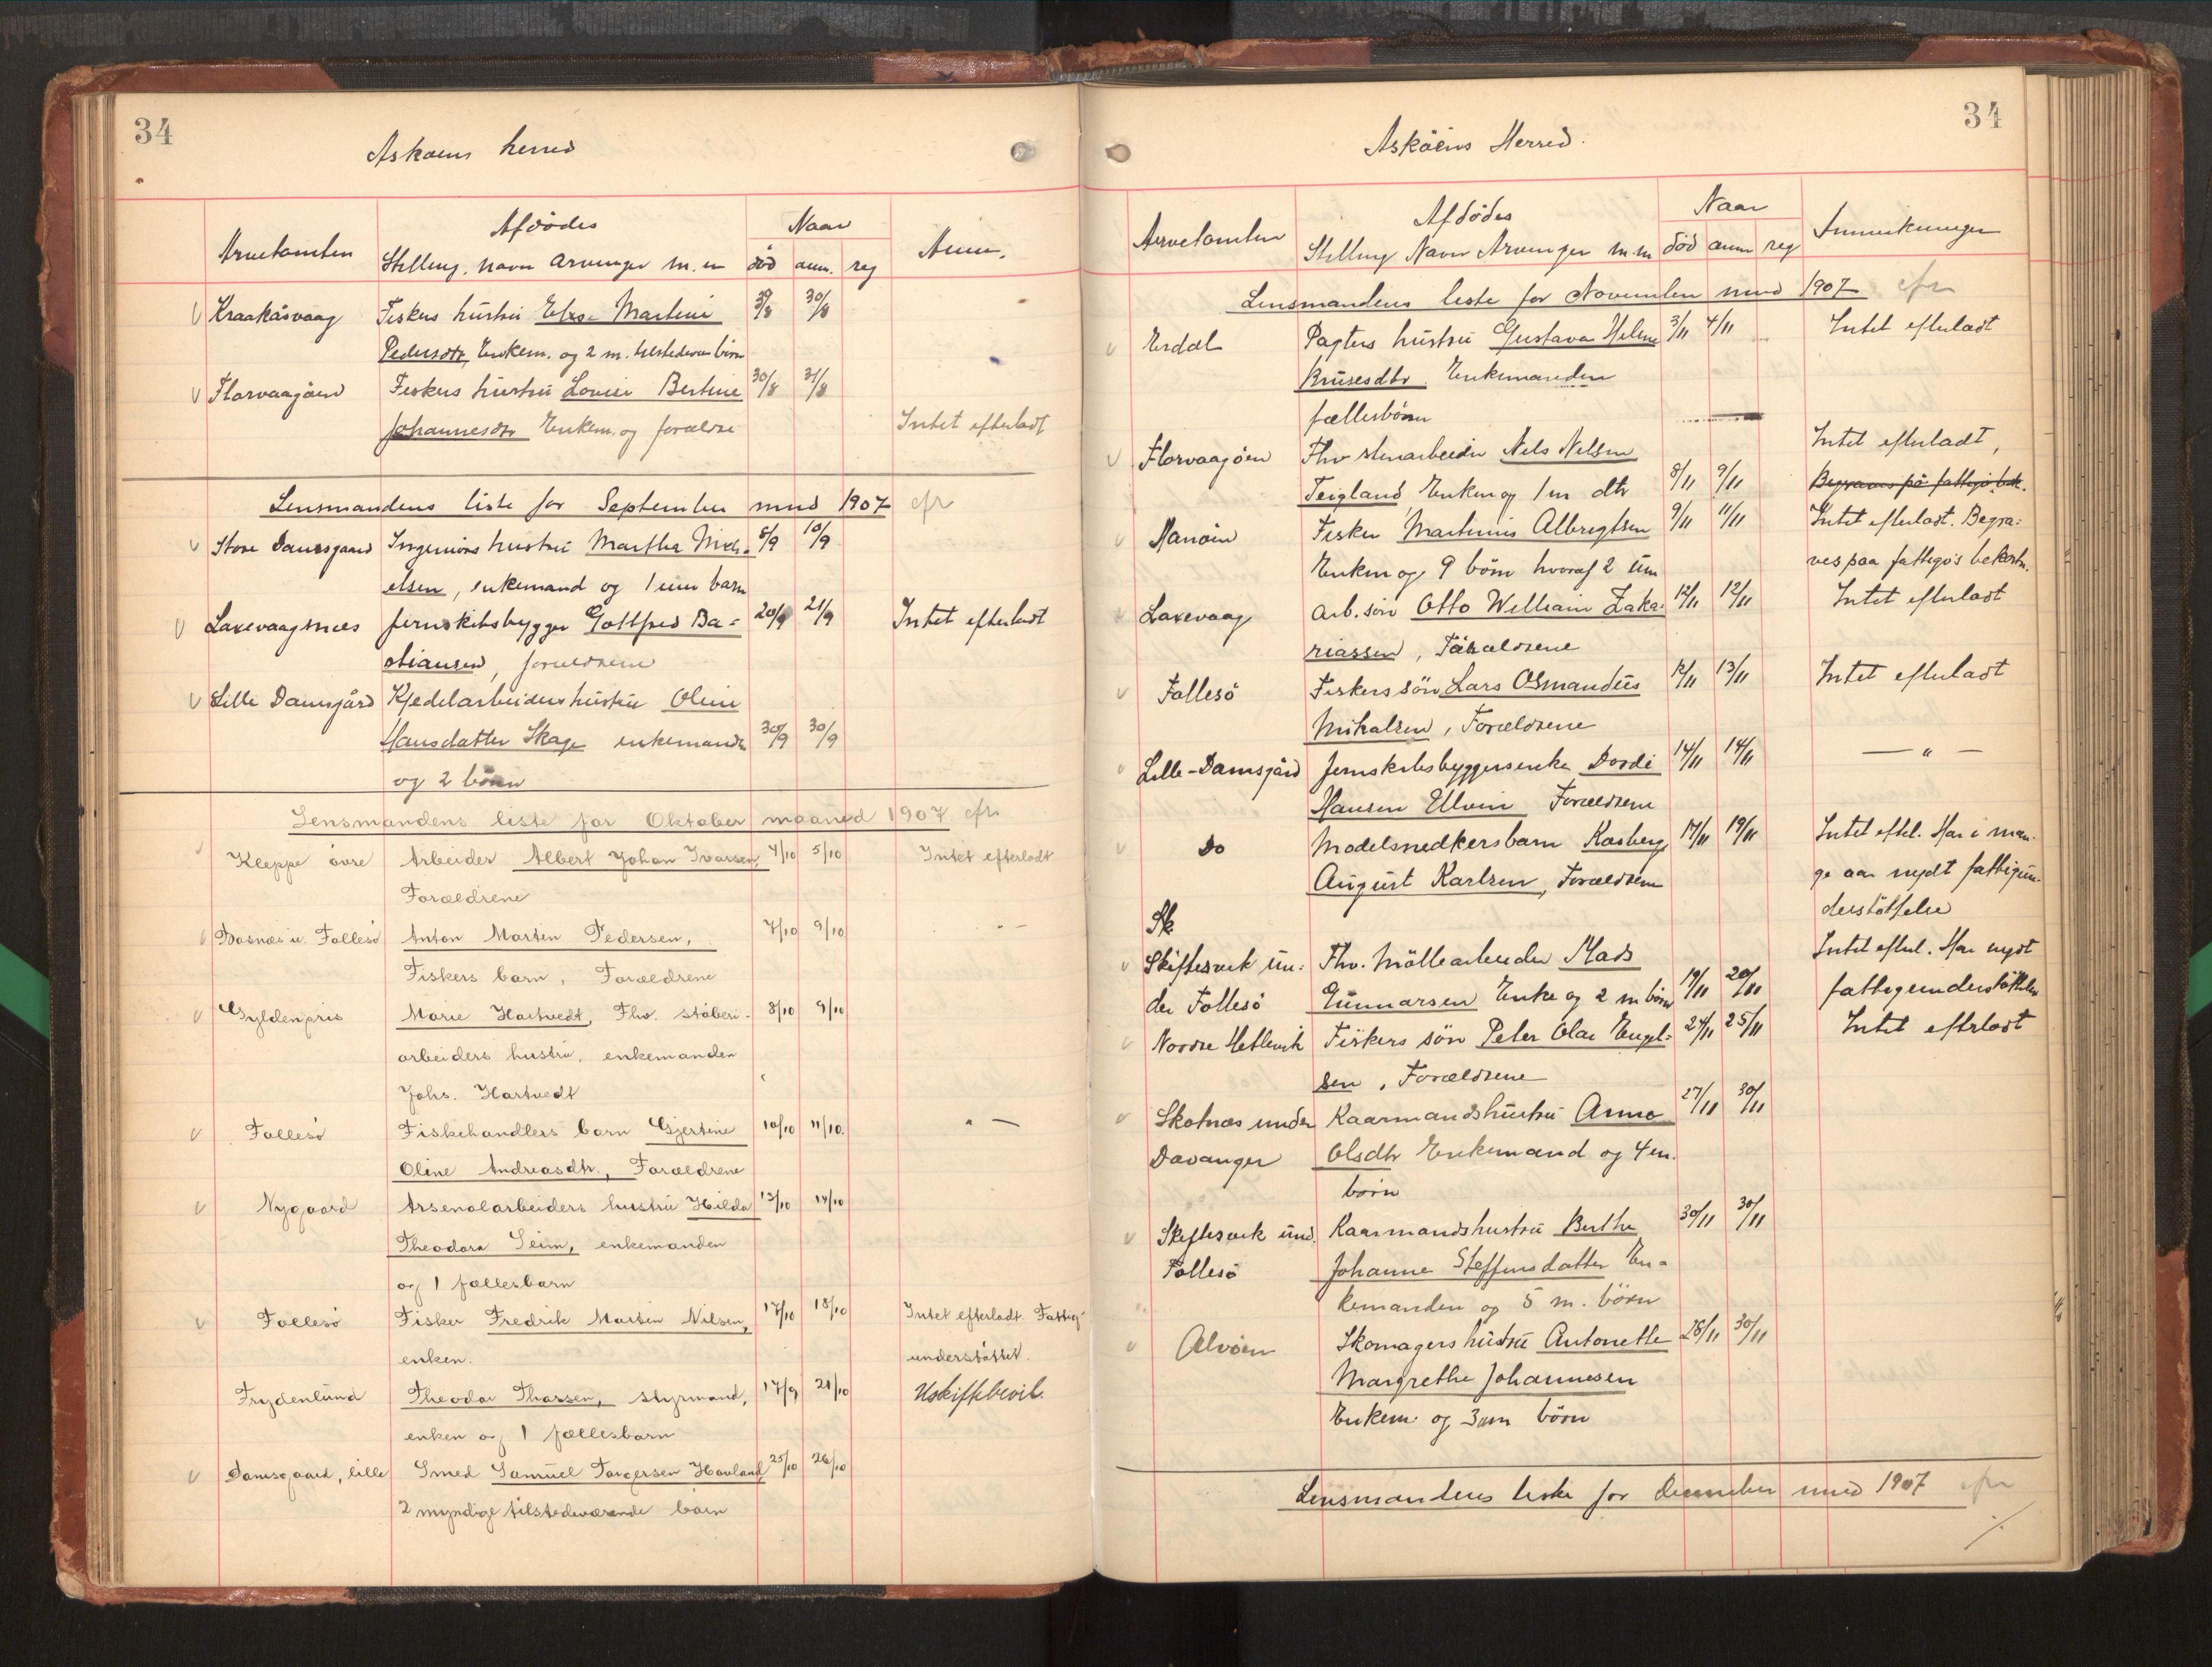 34
Askøens herred
Arvetomten
Afdødes
Stilling. navn Arvinger m.m
Naar
død anm. reg
Anm.
Kraakåsvaag Fiskers hustru Elise Martine 29/8 30/8
Pedersdtr, Enkem. og 2 m. tilstedevær børn
Florvaagøen Fiskers hustru Lovise Bertine 30/8 31/8
Johannesdtr Enkem. og forældre Intet efterladt
Lensmandens liste for September mnd 1907 efr
Store Damsgaard Ingeniørs hustru Martha Mich= 8/9 10/9
elsen, enkemand og 1 um barn
Laxevaagsnes jernskibsbygger Gottfred Ba= 20/9 21/9 Intet efterladt
stiansen, forældrene
Lille Damsgård Kjedelarbeiders hustru Oline
Hansdatter Skage enkemanden 30/9 30/9
og 2 børn
Lensmandens liste for Oktober maaned 1907 efr
Kleppe øvre Arbeider Albert Johan Ivarsen, 4/10 5/10 Intet efterladt
Forældrene
Bosnæs u. Follesø Anton Martin Pedersen, 7/10 9/10 " –
Fiskers barn, Forældrene
Gyldenpris Marie Hartvedt, Fhv. støberi- 8/10 9/10
arbeiders hustru, enkemanden
Johs. Hartvedt
Follesø Fiskehandlers barn Gjertine 10/10 11/10. " –
Oline Andreasdtr., Forældrene
Nygaard Arsenalarbeiders hustru Hilda 13/10 14/10
Theodora Seim, enkemanden
og 1 fællesbarn
Follesø Fisker Fredrik Martin Nilsen, 17/10 18/10 Intet efterladt Fattig
enken. understøttet.
Frydenlund Theodor Thorsen, styrmand, 17/9 21/10 Uskiftebevil.
enken og 1 fællesbarn
Damsgaard, lille Smed Samuel Torgersen Hovland, 25/10 26/10
2 myndige tilstedeværende børn
34
Askøens Herred.
Arvetomten
Afdødes
Stilling Navn Arvinger m.m
Naar
død anm reg
Anmerkninger
Lensmandens liste for November mnd 1907 efr
Erdal Pagters hustru Gustava Helene 3/11 4/11 Intet efterladt
Krusesdtr. Enkemanden
fællesbørn
Florvaagøen Fhv stenarbeider Nels Nelsen Intet efterladt,
Teigland, Enken og 1 m dtr 8/11 9/11 Begraves på fattigv. bek.
Hanøen Fisker Martinus Albregtsen 9/11 11/11 Intet efterladt. Begra=
Enken og 9 børn hvoraf 2 um ves paa fattigv's bekostn.
Laxevaag Arb. søn Otto William Zaka= 12/11 12/11 Intet efterladt
riassen, Forældrene
Follesø Fiskers søn Lars Osmandus 12/11 13/11 Intet efterladt
Mikalsen, Forældrene
Lille-Damsgård Jernskibsbyggersenke Dordi 14/11 14/11 – " –
Hansen Elvin Forældrene
Do Modelsnedkersbarn Kasberg 17/11 19/11 Intet eftel. Har i man-
August Karlsen, Forældrene ge aar nydt fattigun-
Sk derstøttelse
Skiftesvik un= Fhv. Møllearbeider Mads Intet eftel. Har nydt
der Follesø Gunnarsen Enke og 2 m børn 19/11 20/11 fattigunderstøttelse
Nordre Hetlevik Fiskers søn Peter Olai Engel= 24/11 25/11 Intet efterladt
sen, Forældrene
Skotnæs under Kaarmandshustru Anna 27/11 30/11
Davanger Olsdtr Enkemand og 4 m.
børn
Skiftesvik und. Kaarmandshustru Berthe 30/11 30/11
Follesø Johanne Steffensdatter En=
kemanden og 5 m. børn
Alvøen Skomagers hustru Antonette 28/11 30/11
Margrethe Johannesen
Enkem. og 3 um børn
Lensmandens liste for December mnd 1907 efr